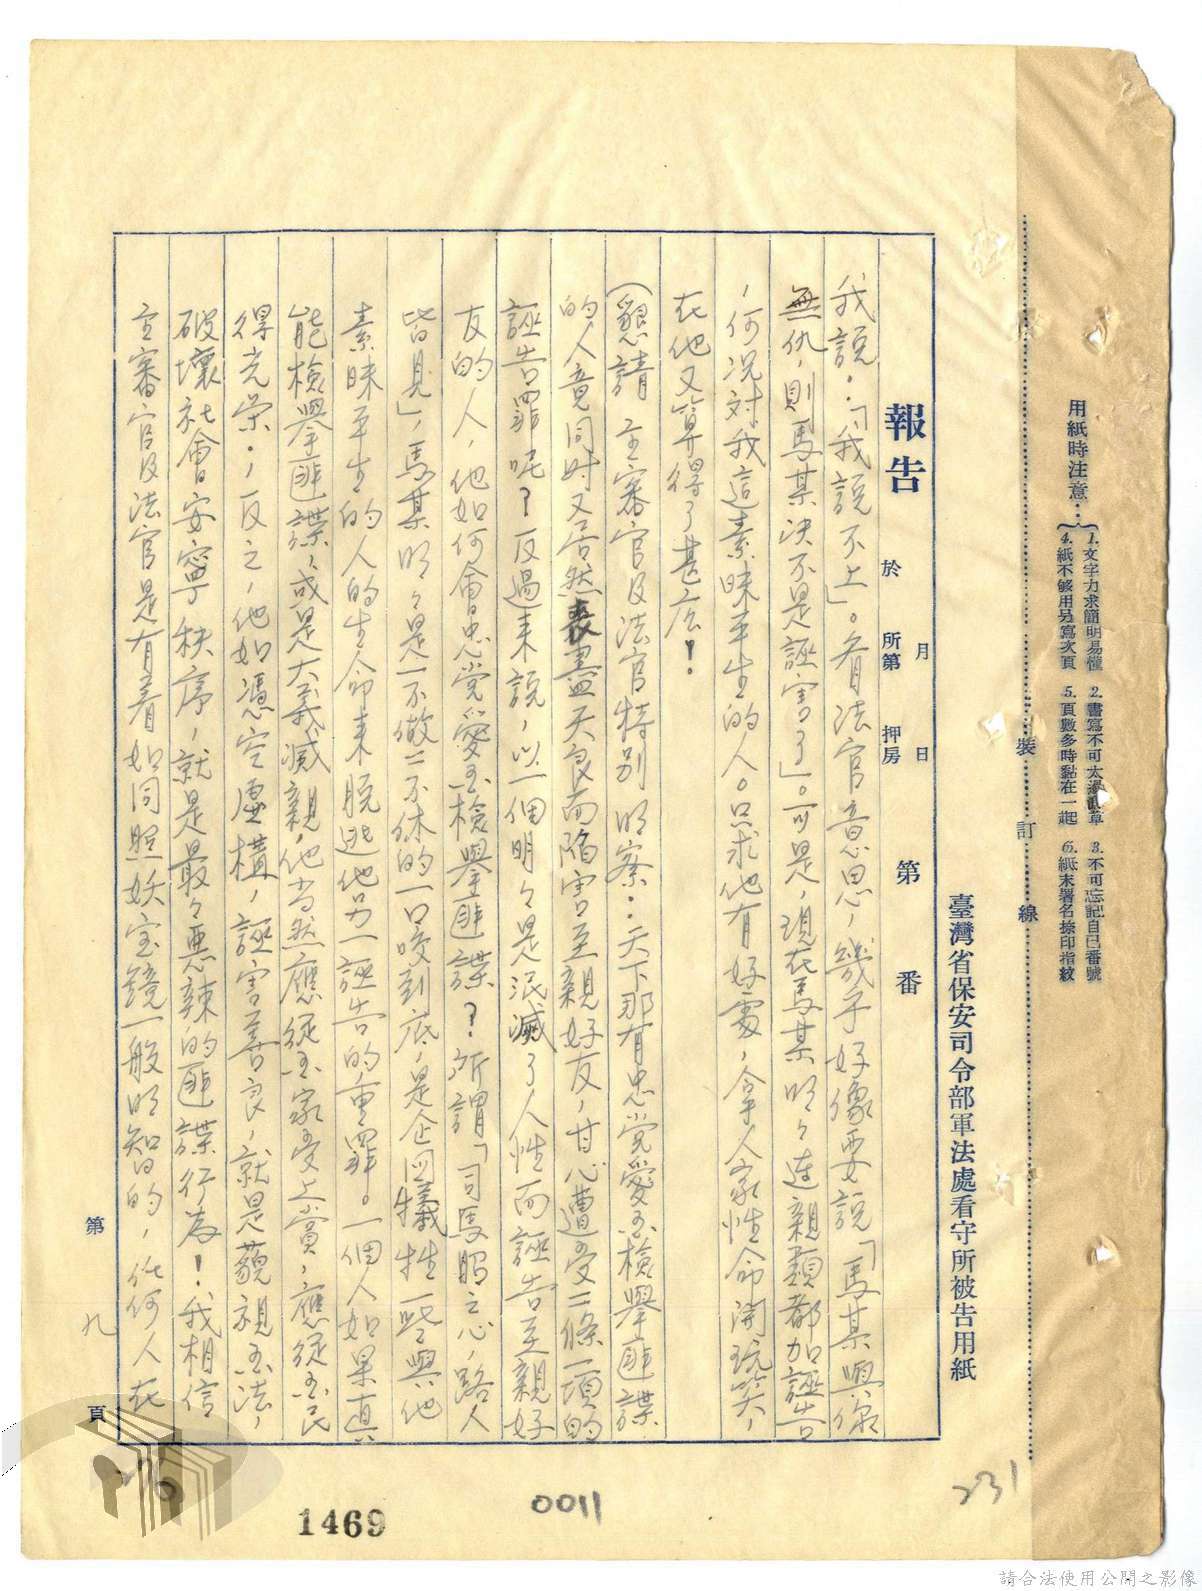 用紙時注意：
1. 文字力求簡明易懂 2. 書寫不可太過潦草 3. 不可忘記自己番號
4. 紙不够用另寫次頁 5. 頁數多時黏在一起 6. 紙末署名捺印指紋
裝訂線
臺灣省保安司令部軍法處看守所被告用紙
報告 於 所第 押房 月 日 第 番
我說：「我說不上」。看法官意思，幾乎好像要說「馬某與你
無仇，則馬某决不是誣害了」。可是，現在馬某明々連親類都加誣告
，何况对我這素昧平生的人。只求他有好處，拿人家性命開玩笑，
在他又算得了甚広！
(懇請 主審官及法官特别明察：天下那有忠党愛国檢舉匪諜
的人竟同时又居然丧盡天良而陷害至親好友，甘心遭受二條一項的
誣告罪呢？反過来說，以一個明々是泯滅了人性而誣告至親好
友的人，他如何會忠党愛国檢舉匪諜？所謂「司馬昭之心，路人
皆見」，馬某明々是一不做二不休的一口咬到底，是企図犠牲一些與他
素昧平生的人的生命来脱逃他另一誣告的重罪。一個人如果真
能檢舉匪諜，或是大義滅親，他当然應從国家受上賞，應從国民
得光栄；反之，他如憑空虛構，誣害善良，就是藐視国法，
破壞社會安寧秩序，就是最々悪辣的匪諜行為！我相信
主審官及法官是有着如同照妖宝鏡一般明智的，任何人在
第 九 頁
1469
0011
231
請合法使用公開之影像